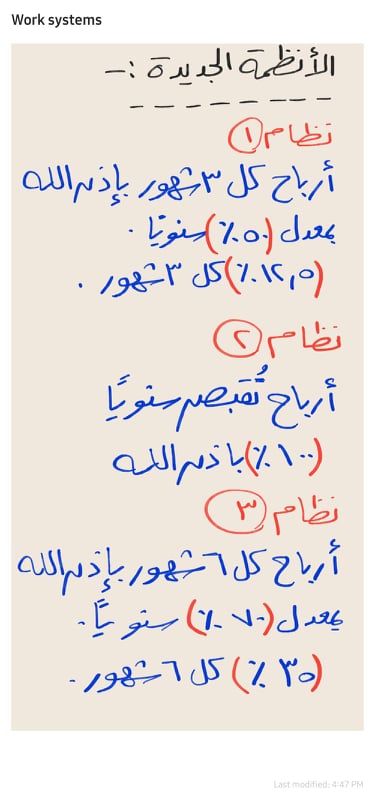 Work systems
الأنظمة الجديدة :-
نظام ١
أرباح كل ٣ شهور بإذن الله
بمعدل (٥٠٪) سنويًا .
(١٢,٥٪) كل ٣ شهور .
نظام ٢
أرباح تُقبض سنويًا
(١٠٠٪) باذن الله
نظام ٣
أرباح كل ٦ شهور بإذن الله
بمعدل (٧٠٪) سنويًا .
(٣٥٪) كل ٦ شهور .
Last modified: 4:47 PM